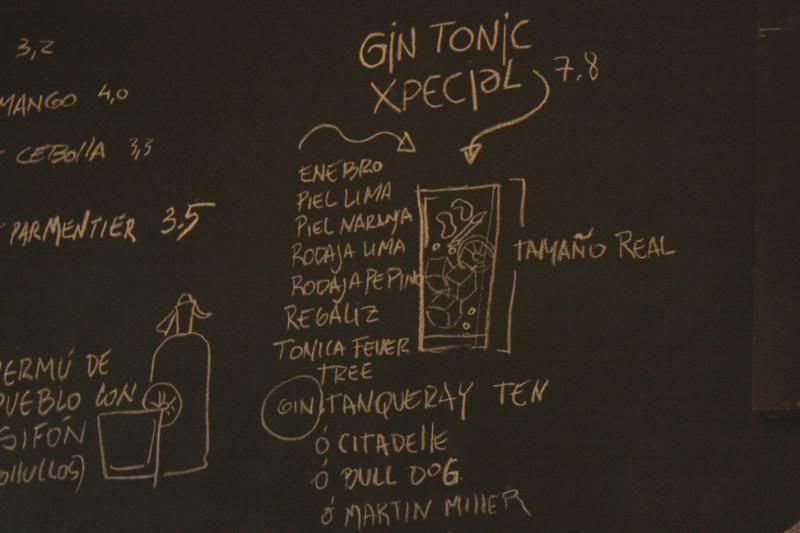 3,2
MANGO 4,0
CEBOLLA 3,3
PARMENTIER 3.5
GIN TONIC
XPECIAL 7,8
ENEBRO
PIEL LIMA
PIEL NARANJA
RODAJA LIMA
RODAJA PEPINO
REGALIZ
TONICA FEVER
TREE
GIN TANQUERAY TEN
Ó CITADELLE
Ó BULL DOG
Ó MARTIN MILLER
TAMAÑO REAL
ERMÚ DE
PUEBLO CON
SIFÓN